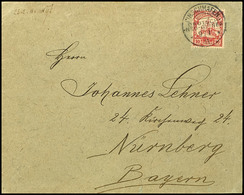 Johannes Lehner
24. Kirchenweg 24.
Nürnberg
Bayern